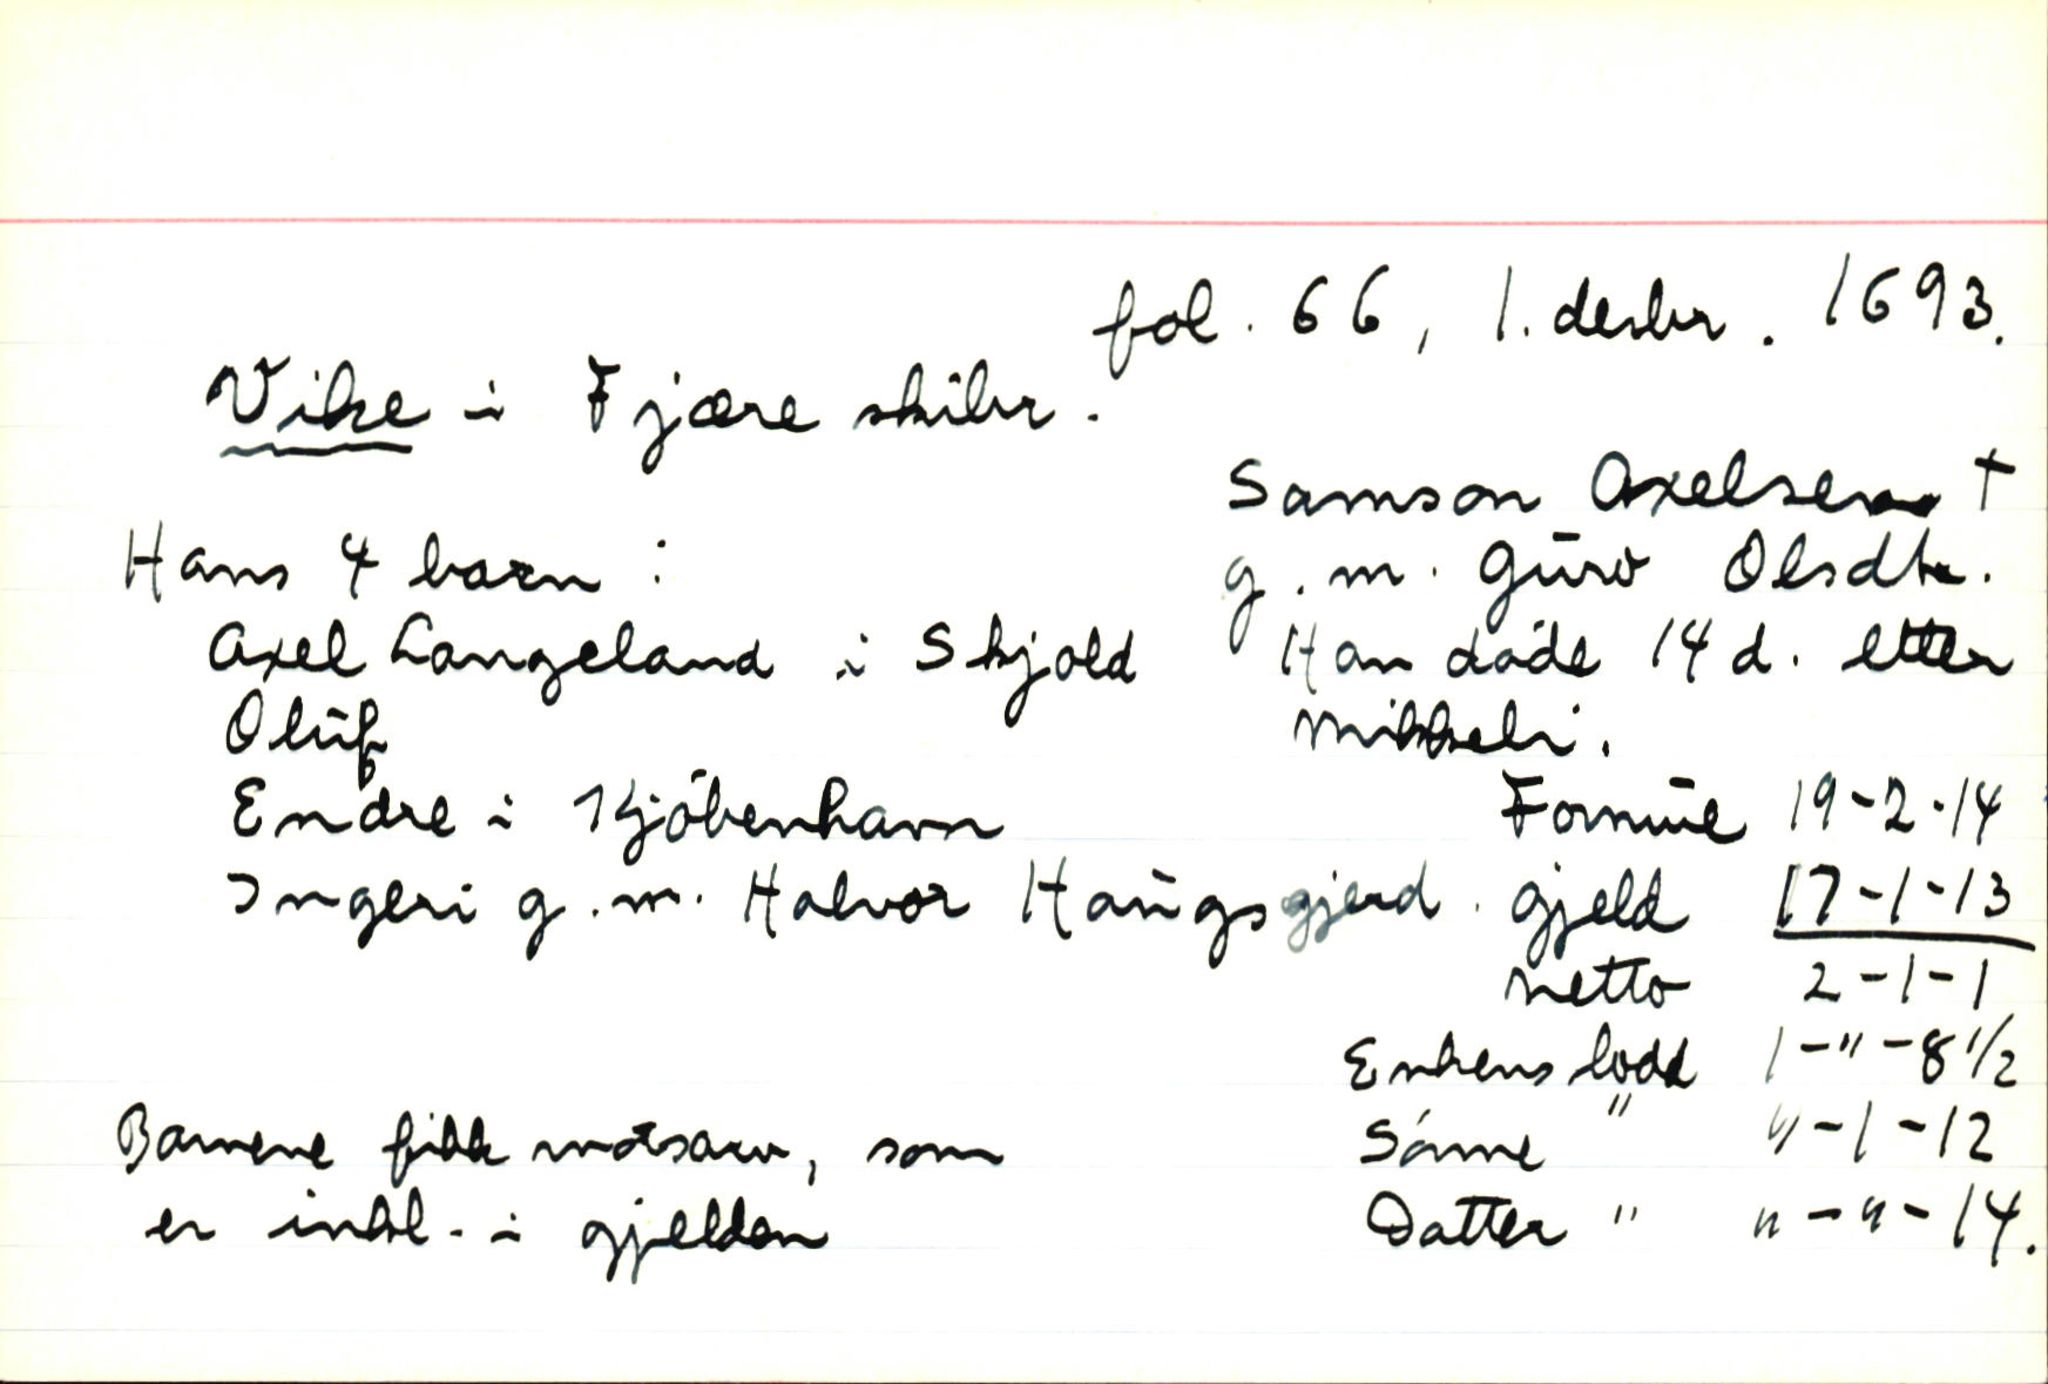 fol. 66, 1. desbr. 1693.
Vike i Fjære skibr.
Samson Axelsen †
g.m. Gūro Olsdtr.
Han døde 14 d. etter
Mikkeli.
Hans 4 barn:
Axel Langeland i Skjold
Olūf
Endre i Kjøbenhavn
Ingeri g.m. Halvor Haūgsgjerd.
Formūe 19-2-14
gjeld 17-1-13
netto 2-1-1
Enkens lodd 1-"-8 1/2
Sønne " "-1-12
Datter " "-"-14.
Barnene fikk motsarv, som
er inkl. i gjelden